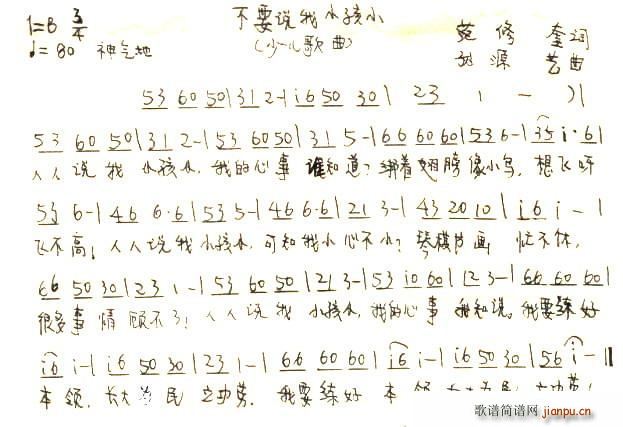 不要说我小孩小
1=B 3/4
♩=80 神气地
(少儿歌曲)
范修奎词
源艺曲
53 60 50|31 2-|i6 50 30|23 1 - )|
53 60 50|31 2-|53 60 50|31 5-|66 60 60|536-|35 i·6|
人人说我小孩小,我的心事谁知道?绑着翅膀像小鸟,想飞呀
53 6-|46 6·6|53 5-|46 6·6|21 3-|43 20 10|i6 i-|
飞不高!人人说我小孩小,可知我小心不小?琴棋书画忙不休,
66 50 30|23 1-|53 60 50|21 3-|53 i0 60|12 3-|66 60 60|
很多事情顾不了!人人说我小孩小,我的心事我知说,我要练好
i6 i-|i6 50 30|23 1-|66 60 60|i6 i-|i6 50 30|56 i-‖
本领,长大为民立功劳。我要练好本领
歌谱简谱网
jianpu.cn